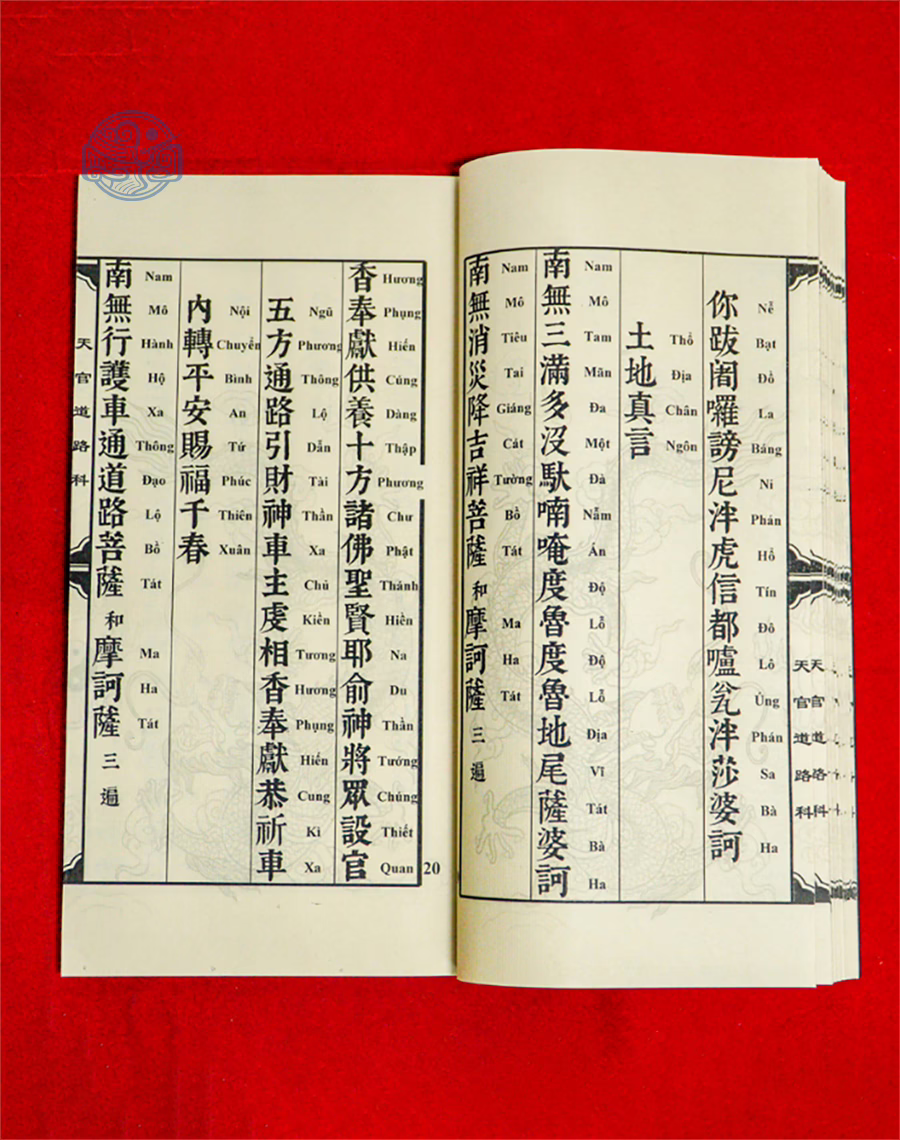 你跋闍囉謗尼泮虎信都嚧瓮泮莎婆訶
Nễ Bạt Đồ La Báng Ni Phán Hổ Tín Đô Lô Ủng Phán Sa Bà Ha
土地真言
Thổ Địa Chân Ngôn
南無三滿多沒馱喃唵度魯度魯地尾薩婆訶
Nam Mô Tam Mãn Đa Một Đà Nẫm Án Độ Lỗ Độ Lỗ Địa Vĩ Tát Bà Ha
南無消災降吉祥菩薩 和 摩訶薩 三遍
Nam Mô Tiêu Tai Giáng Cát Tường Bồ Tát Ma Ha Tát
香奉獻供養十方諸佛聖賢耶俞神將眾設官
Hương Phụng Hiến Cúng Dàng Thập Phương Chư Phật Thánh Hiền Na Du Thần Tướng Chúng Thiết Quan
五方通路引財神車主虔相香奉獻恭祈車
Ngũ Phương Thông Lộ Dẫn Tài Thần Xa Chủ Kiền Tương Hương Phụng Hiến Cung Kì Xa
內轉平安賜福千春
Nội Chuyển Bình An Tứ Phúc Thiên Xuân
南無行護車通道路菩薩 和 摩訶薩 三遍
Nam Mô Hành Hộ Xa Thông Đạo Lộ Bồ Tát Ma Ha Tát
天官道路科
20
天官道路科
天官道路科